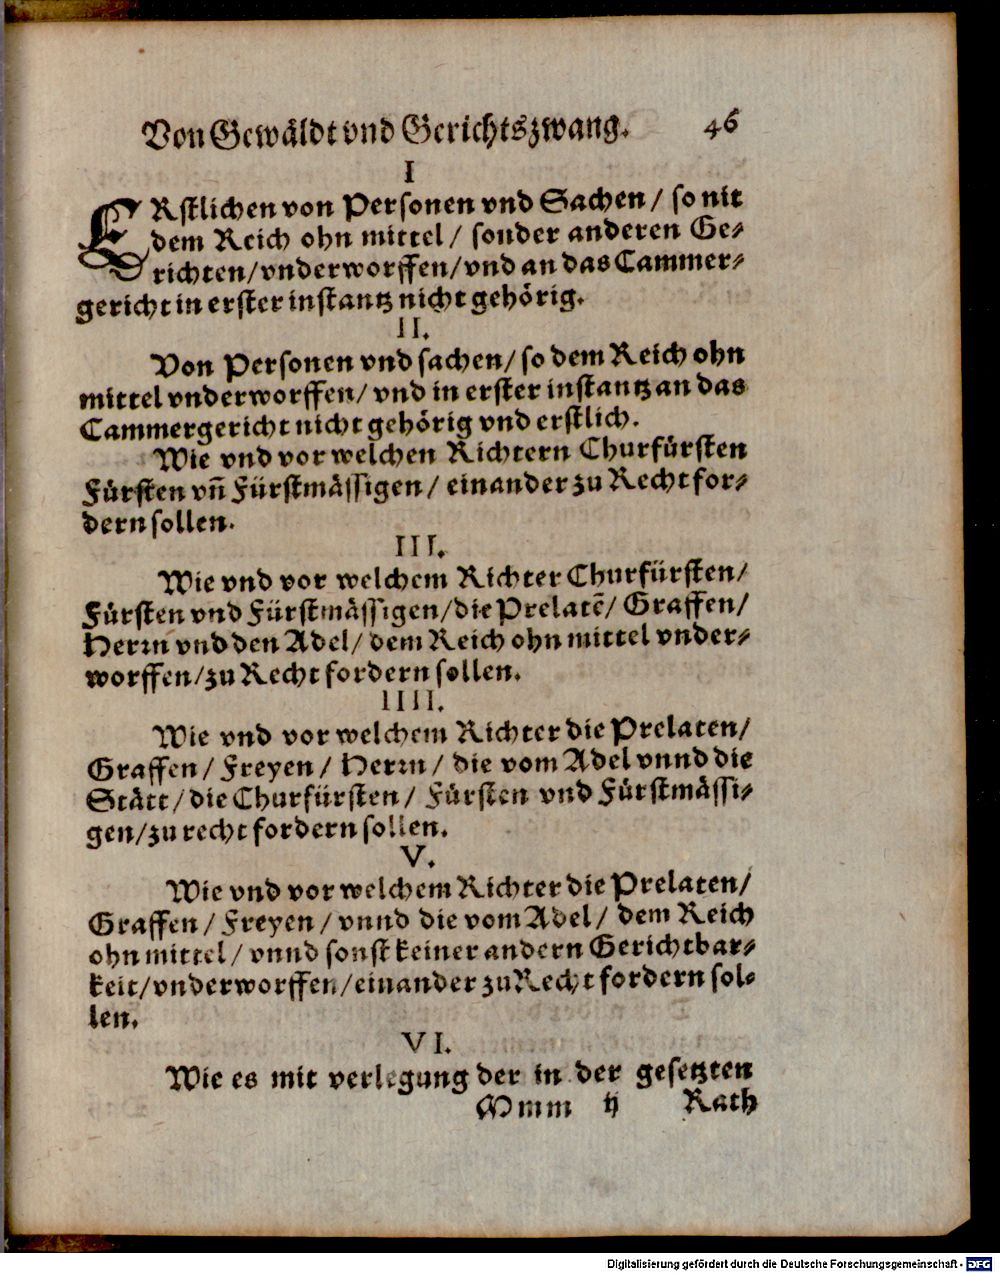 Von Gewäldt vnd Gerichtszwang. 46
I
ERstlichen von Personen vnd Sachen / so nit
dem Reich ohn mittel / sonder anderen Ge-
richten/vnderworffen/vnd an das Cammer-
gericht in erster instantz nicht gehörig.
II.
Von Personen vnd sachen/ so dem Reich ohn
mittel vnderworffen/ vnd in erster instantz an das
Cammergericht nicht gehörig vnd erstlich.
Wie vnd vor welchen Richtern Churfürsten
Fürsten vñ Fürstmässigen/ einander zu Recht for-
dern sollen.
III.
Wie vnd vor welchem Richter Churfürsten/
Fürsten vnd Fürstmässigen/die Prelatẽ/ Graffen/
Herrn vnd den Adel/ dem Reich ohn mittel vnder-
worffen/zu Recht fordern sollen.
IIII.
Wie vnd vor welchem Richter die Prelaten/
Graffen/ Freyen / Herrn / die vom Adel vnnd die
Stätt/die Churfürsten/ Fürsten vnd Fürstmässi-
gen/zu recht fordern sollen.
V.
Wie vnd vor welchem Richter die Prelaten/
Graffen/ Freyen / vnnd die vom Adel/ dem Reich
ohn mittel/ vnnd sonst keiner andern Gerichtbar-
keit/vnderworffen/einander zu Recht fordern sol-
len.
VI.
Wie es mit verlegung der in der gesetzten
Mmm ij Rath
Digitalisierung gefördert durch die Deutsche Forschungsgemeinschaft - DFG